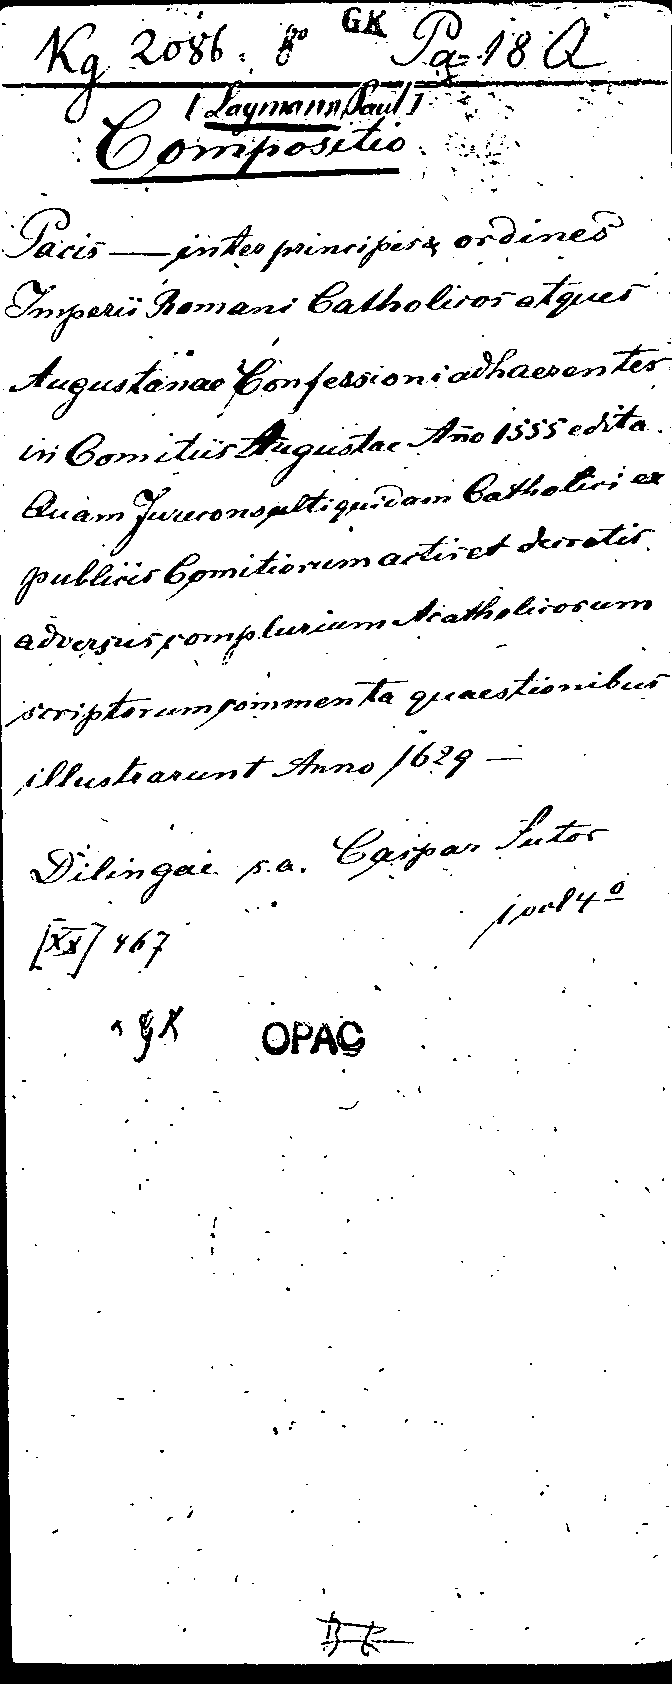 Kg 2086. 8° GK Pa 18 Q
[Laymann, Paul]
Compositio
Pacis — inter principes & ordines
Imperii Romani Catholicos atques
Augustanae Confessioni adhaerentes
in Comitiis Augustae Año 1555 edita.
Quam Jureconsulti quidam Catholici ex
publicis Comitiorum actis et decretis
adversus complurium Acatholicorum
scriptorum commenta quaestionibus
illustrarunt Anno 1629 —
Dilingae s.a. Caspar Sutor
1 vol 4°
[XX] 467
GK OPAC